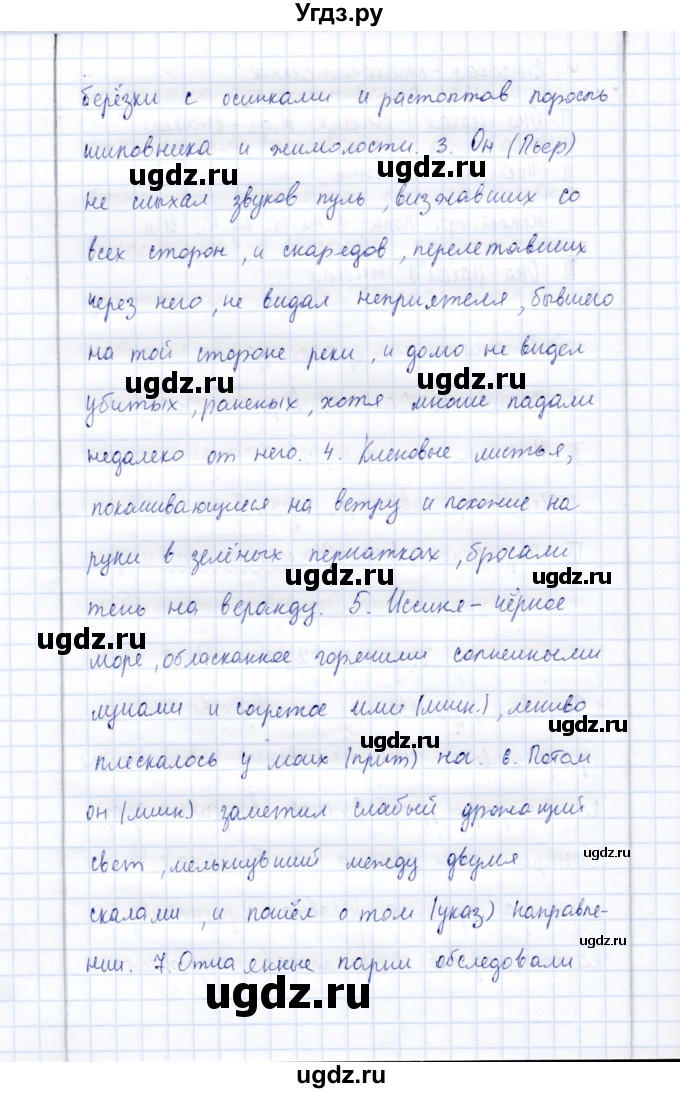 Угдз.ру
берёзки с осинками и растоптав поросль
шиповника и жимолости. 3. Он (Пьер)
не слыхал звуков пуль, визжавших со
всех сторон, и снарядов, перелетавших
через него, не видал неприятеля, бывшего
на той стороне реки, и долго не видел
убитых, раненых, хотя многие падали
недалеко от него. 4. Кленовые листья,
покачивающиеся на ветру и похожие на
руки в зелёных перчатках, бросали
тень на веранду. 5. Иссиня-чёрное
море, обласканное горячими солнечными
лучами и согретое ими (личн.), лениво
плескалось у моих (прит) на. 6. Потом
он (личн.) заметил слабый дрожащий
свет, мелькнувший между двумя
скалами, и пошёл о том (указ) направле-
нии. 7. Отчаянные парни обследовали
ugdz.ru
ugdz.ru
ugdz.ru
ugdz.ru
ugdz.ru
ugdz.ru
ugdz.ru
ugdz.ru
ugdz.ru
ugdz.ru
ugdz.ru
ugdz.ru
ugdz.ru
ugdz.ru